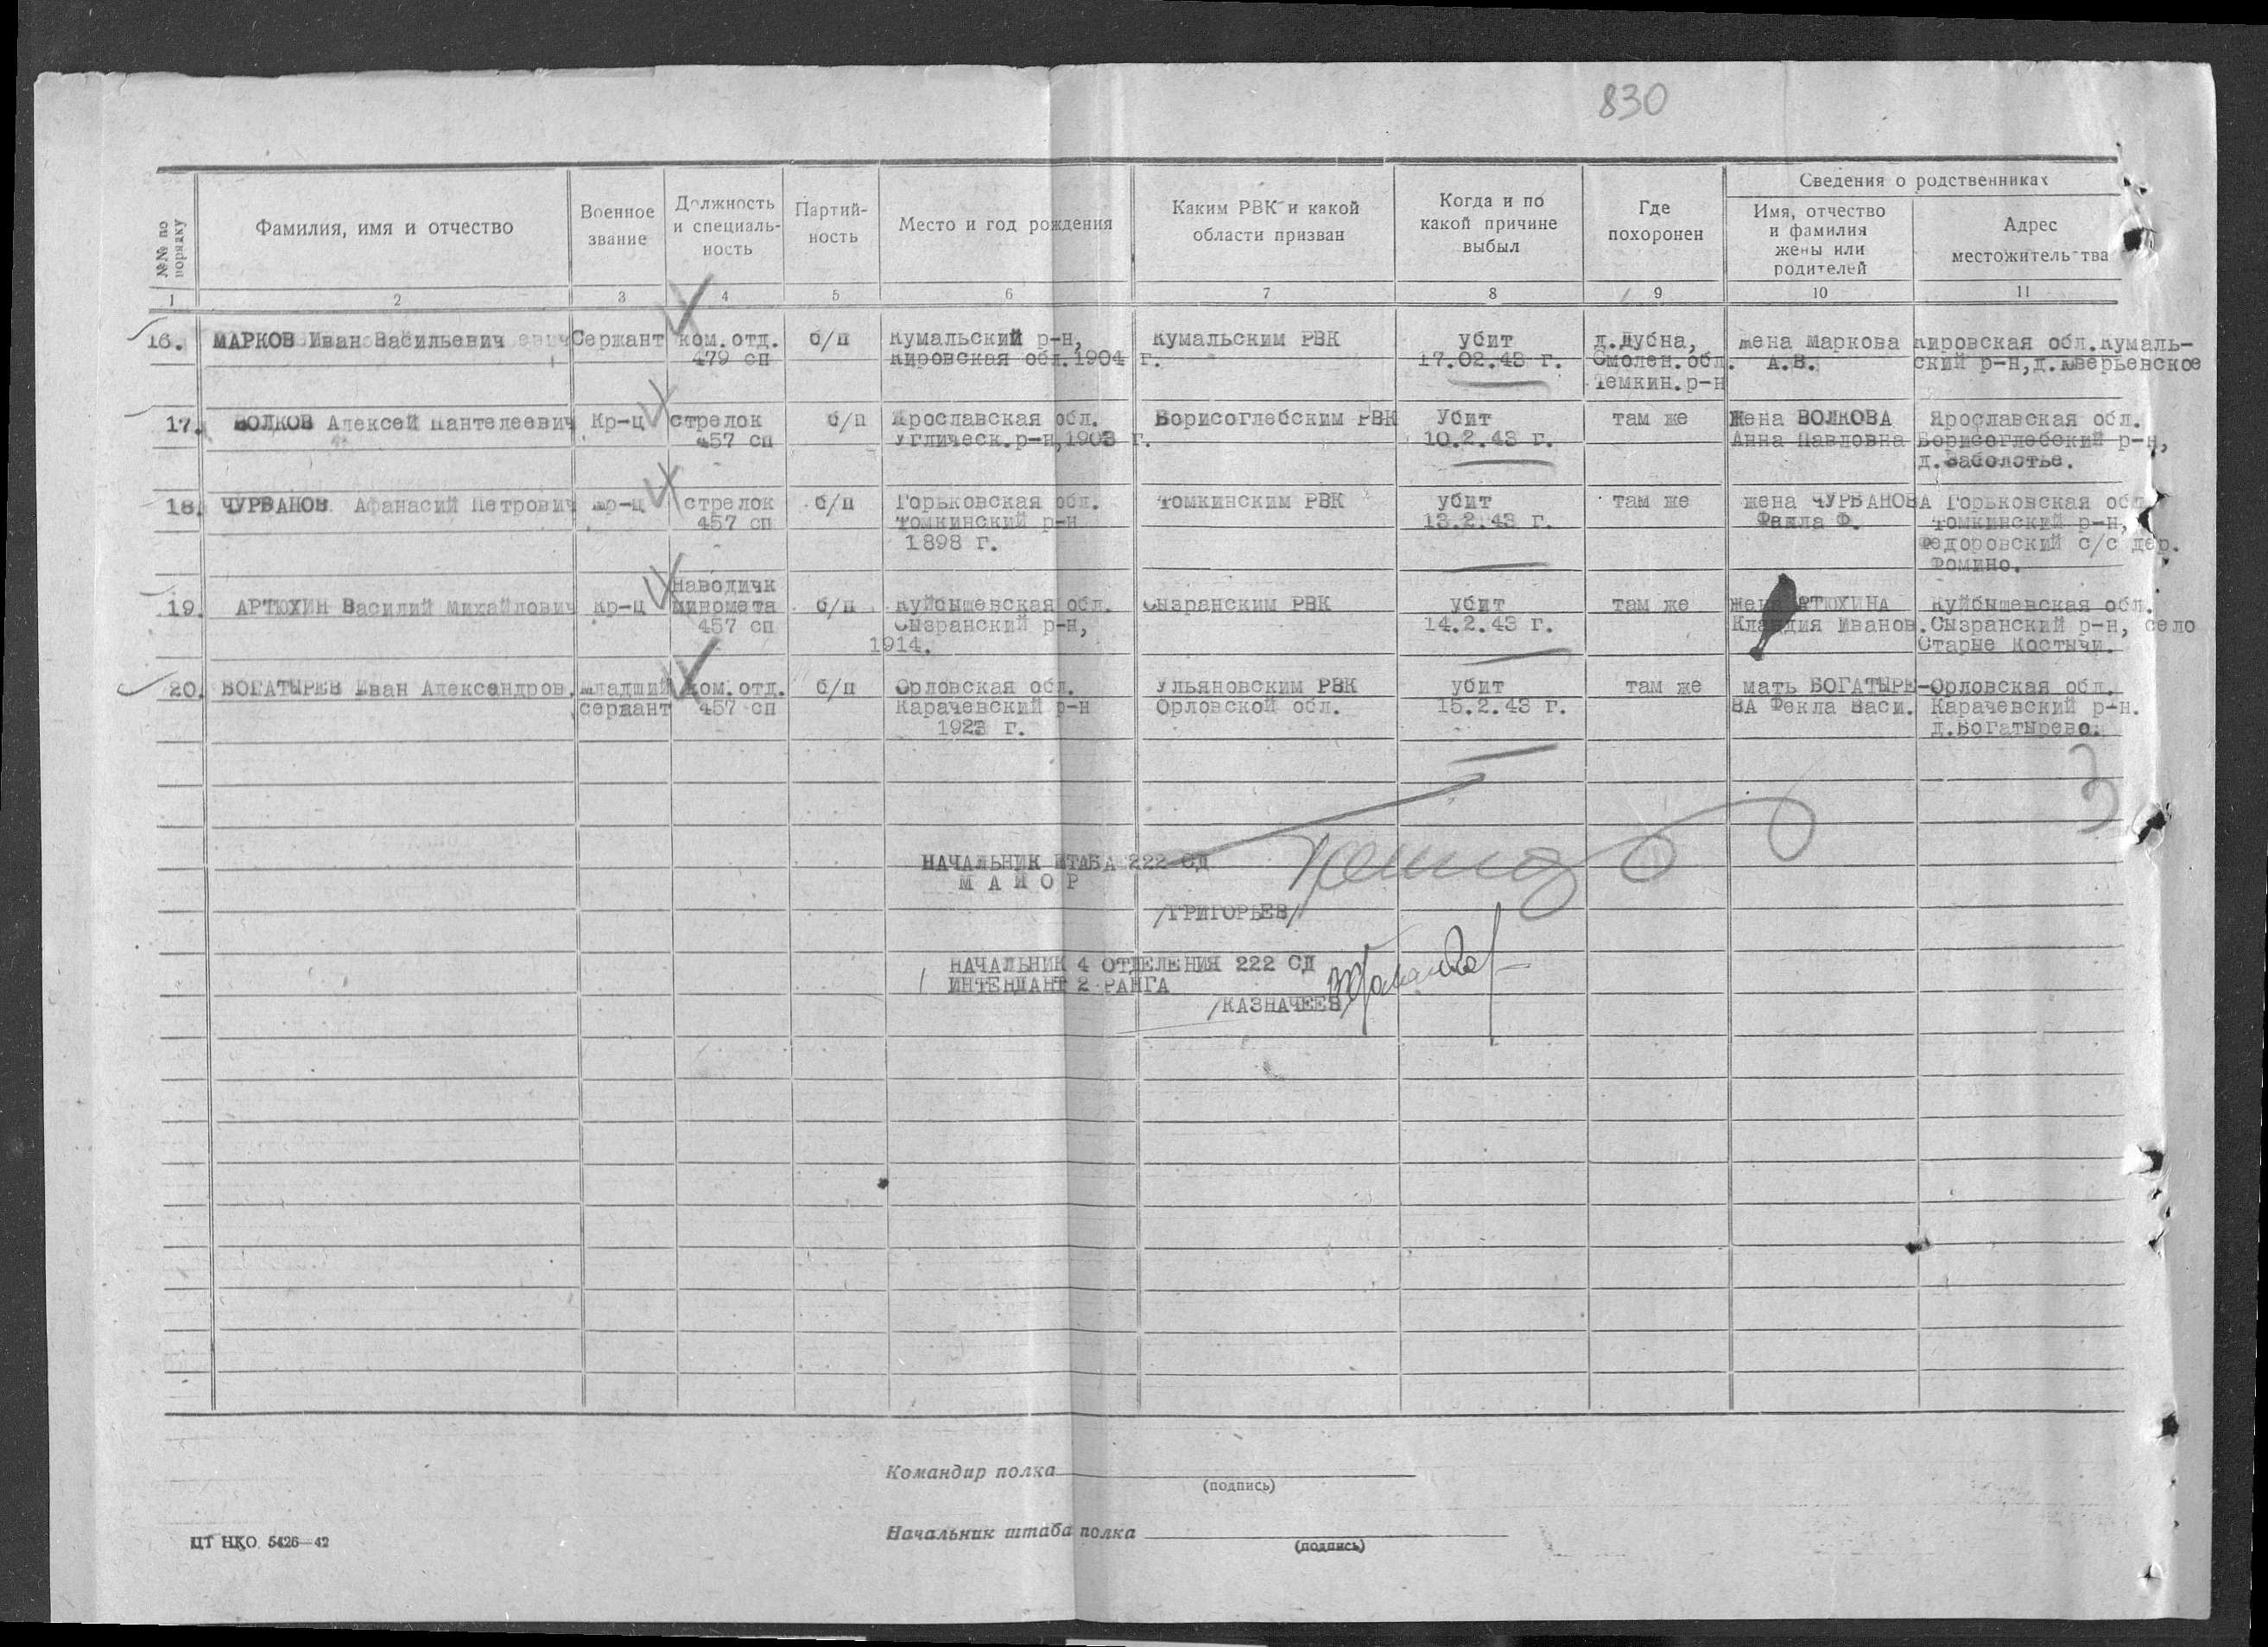 830
Сведения о родственниках
№№ по порядку
Фамилия, имя и отчество
Военное звание
Должность и специальность
Партийность
Место и год рождения
Каким РВК и какой области призван
Когда и по какой причине выбыл
Где похоронен
Имя, отчество и фамилия жены или родителей
Адрес местожительства
1 2 3 4 5 6 7 8 9 10 11
16. МАРКОВ Иван Васильевич Сержант ком.отд. б/п Кумальский р-н, Кумальским РВК убит д.Дубна, жена Маркова Кировская обл.Кумаль-
479 сп Кировская обл.1904 г. 17.02.43 г. Смолен.обл. А.В. ский р-н,д.
Темкин.р-н
17. ВОЛКОВ Алексей Пантелеевич Кр-ц стрелок б/п Ярославская обл. Борисоглебским РВК Убит там же Жена ВОЛКОВА Ярославская обл.
457 сп Углическ.р-н,1903 г. 10.2.43 г. Анна Павловна Борисоглебский р-н,
д.Заболотье.
18. ЧУРБАНОВ Афанасий Петрович кр-ц стрелок б/п Горьковская обл. Томкинским РВК убит там же жена ЧУРБАНОВА Горьковская обл
457 сп Томкинский р-н 13.2.43 г. Ф. Томкинский р-н,
1898 г. Федоровский с/с дер.
Фомино.
наводичк
19. АРТЮХИН Василий Михайлович кр-ц миномета б/п Куйбышевская обл. Сызранским РВК убит там же Жена АРТЮХИНА Куйбышевская обл.
457 сп Сызранский р-н, 14.2.43 г. Клавдия Иванов. Сызранский р-н, село
1914. Старые Костычи.
20. БОГАТЫРЕВ Иван Александров. младший ком.отд. б/п Орловская обл. Ульяновским РВК убит там же мать БОГАТЫРЕ- Орловская обл.
сержант 457 сп Карачевский р-н Орловской обл. 15.2.43 г. ВА Фекла Васи. Карачевский р-н.
1923 г. д.Богатырево.
НАЧАЛЬНИК ШТАБА 222 СД
МАЙОР
/ГРИГОРЬЕВ/
НАЧАЛЬНИК 4 ОТДЕЛЕНИЯ 222 СД
ИНТЕНДАНТ 2 РАНГА
/КАЗНАЧЕЕВ/
Командир полка
(подпись)
Начальник штаба полка
(подпись)
ЦТ НКО 5426—42